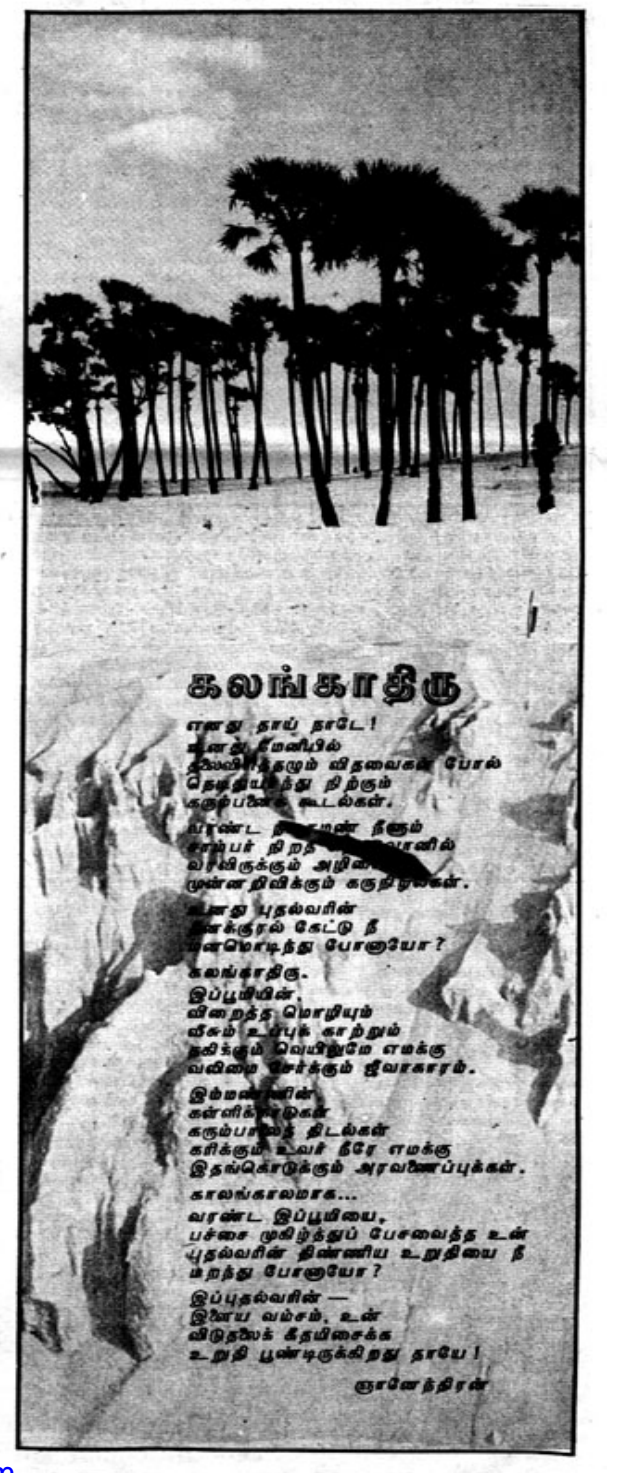 கலங்காதிரு
எனது தாய் நாடே!
உனது மேனியில்
தலைவிரித்தழும் விதவைகள் போல்
நெடிதுயர்ந்து நிற்கும்
கரும்பனைக் கூடல்கள்.
வரண்ட நீளும்
சாம்பர் நிறத்
வரவிருக்கும்
முன்னறிவிக்கும் கருநிழல்கள்.
உனது புதல்வரின்
தினக்குரல் கேட்டு நீ
மனமொடிந்து போனாயோ?
கலங்காதிரு.
இப்பூமியின்,
விறைத்த மொழியும்
வீசும் உப்புக் காற்றும்
தகிக்கும் வெயிலுமே எமக்கு
வலிமை சேர்க்கும் ஜீவாகாரம்.
இம்மண்ணின்
கள்ளிக்காடுகள்
கரும்பாலைத் திடல்கள்
கரிக்கும் உவர் நீரே எமக்கு
இதங்கொடுக்கும் அரவணைப்புக்கள்.
காலங்காலமாக...
வரண்ட இப்பூமியை,
பச்சை முகிழ்த்துப் பேசவைத்த உன்
புதல்வரின் திண்ணிய உறுதியை நீ
மறந்து போனாயோ?
இப்புதல்வரின் —
இளைய வம்சம், உன்
விடுதலைக் கீதமிசைக்க
உறுதி பூண்டிருக்கிறது தாயே!
ஞானேந்திரன்
m